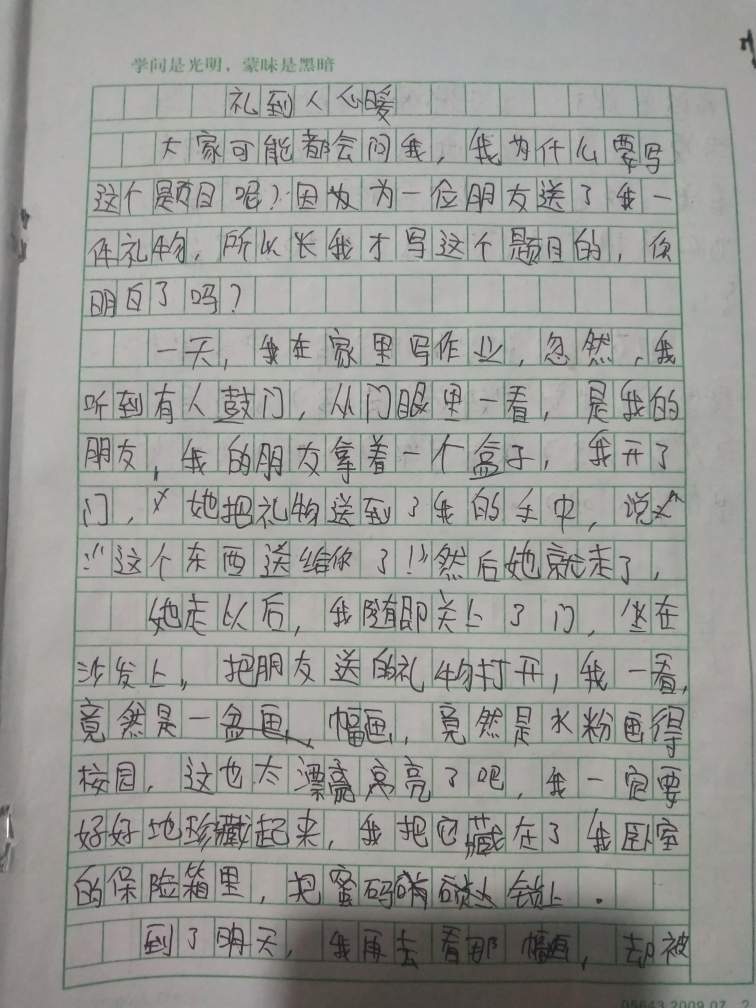 学问是光明，蒙昧是黑暗
礼到人心暖
大家可能都会问我，我为什么要写
这个题目呢？因为为一位朋友送了我一
件礼物，所以长我才写这个题目的，你
明白了吗？
一天，我在家里写作业，忽然，我
听到有人鼓门，从门眼里一看，是我的
朋友，我的朋友拿着一个盒子，我开了
门，她把礼物送到了我的手中，说
：“这个东西送给你了！”然后她就走了，
她走以后，我随即关上了门，坐在
沙发上，把朋友送的礼物打开，我一看，
竟然是一盆画、幅画，竟然是水粉画得
校园，这也太漂亮亮了吧，我一定要
好好地珍藏起来，我把它藏在了我卧室
的保险箱里，把蜜码锁上。
到了明天，我再去看那幅画，却被
05643 2009.07 2